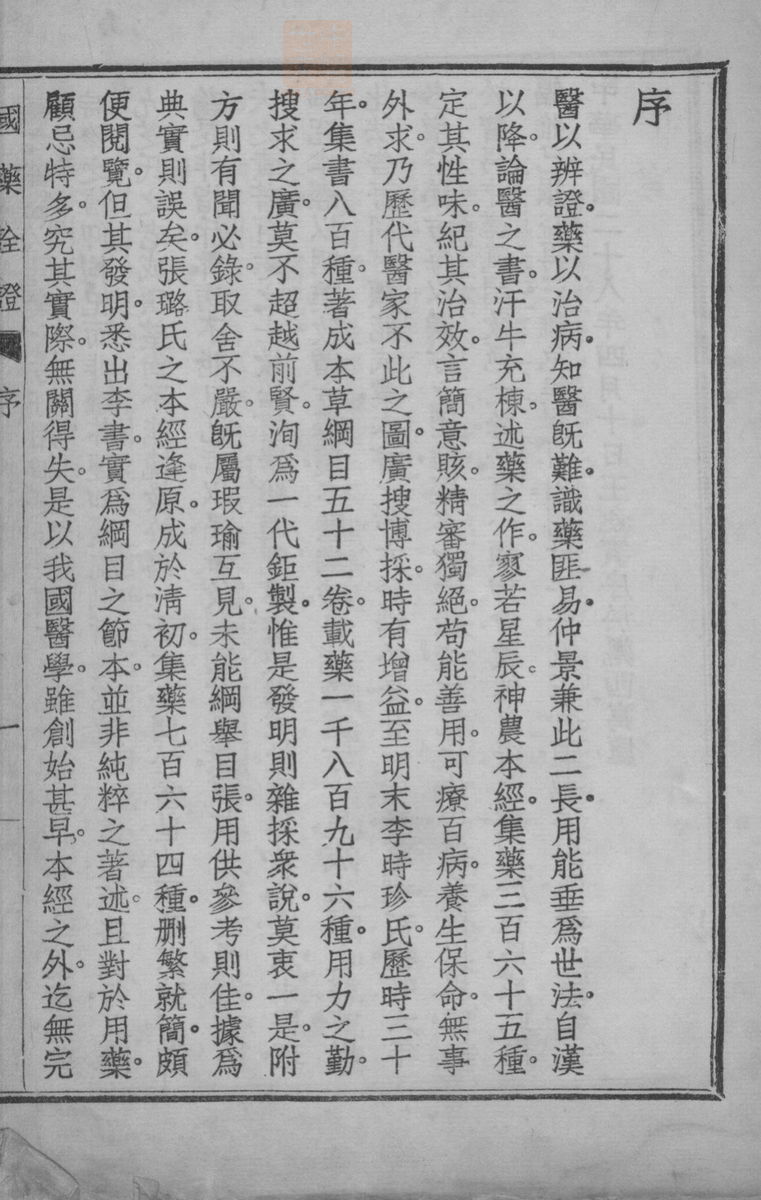 序
醫以辨證。藥以治病。知醫旣難。識藥匪易。仲景兼此二長。用能垂爲世法。自漢
以降。論醫之書。汗牛充棟。述藥之作。寥若星辰。神農本經。集藥三百六十五種。
定其性味。紀其治效。言簡意賅。精審獨絕。苟能善用。可療百病。養生保命。無事
外求。乃歷代醫家不此之圖。廣搜博採。時有增益。至明末李時珍氏。歷時三十
年。集書八百種。著成本草綱目五十二卷。載藥一千八百九十六種。用力之勤。
搜求之廣。莫不超越前賢。洵爲一代鉅製。惟是發明則雜採衆說。莫衷一是。附
方則有聞必錄。取舍不嚴。旣屬瑕瑜互見。未能綱舉目張。用供參考則佳。據爲
典實則誤矣。張璐氏之本經逢原。成於淸初。集藥七百六十四種。刪繁就簡。頗
便閱覽。但其發明。悉出李書。實爲綱目之節本。並非純粹之著述。且對於用藥。
顧忌特多。究其實際。無關得失。是以我國醫學。雖創始甚早。本經之外。迄無完
國藥詮證 序 一